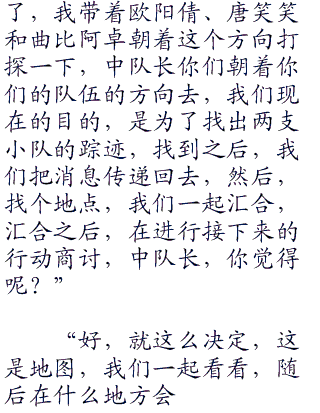 了，我带着欧阳倩、唐笑笑
和曲比阿卓朝着这个方向打
探一下，中队长你们朝着你
们的队伍的方向去，我们现
在的目的，是为了找出两支
小队的踪迹，找到之后，我
们把消息传递回去，然后，
找个地点，我们一起汇合，
汇合之后，在进行接下来的
行动商讨，中队长，你觉得
呢？”
“好，就这么决定，这
是地图，我们一起看看，随
后在什么地方会